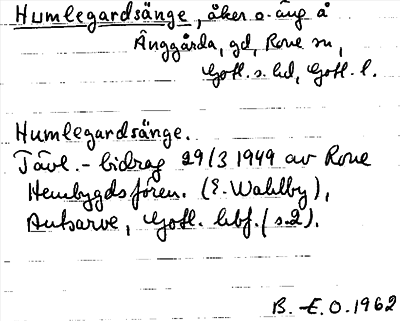 Humlegardsänge, åker o. äng å
Änggårda, gd, Rone sn,
Gotl. s. hd, Gotl. l.
Humlegardsänge.
Tävl. - bidrag 29/3 1949 av Rone
Hembygdsfören. (E. Wahlby),
Autsarve, Gotl. hbf. (s. 2).
B. E. O. 1962